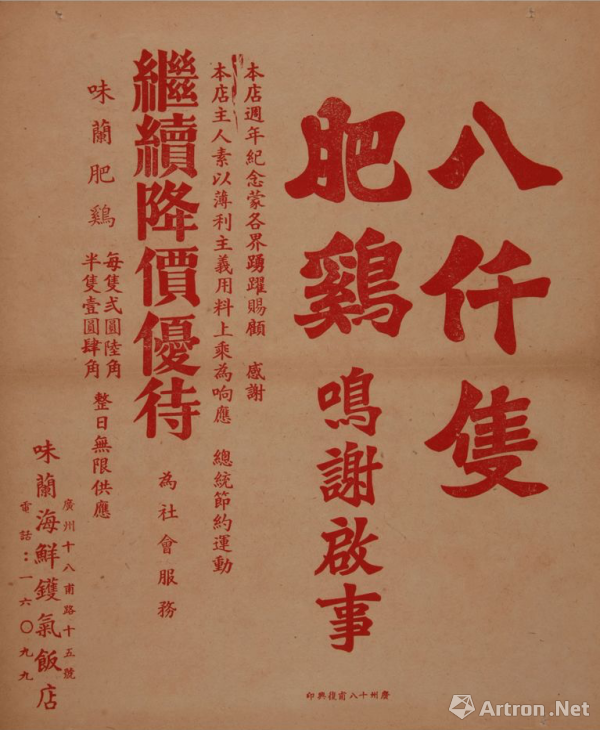 八仟隻
肥鷄鳴謝啟事
本店週年紀念蒙各界踴躍賜顧 感謝
本店主人素以薄利主義用料上乘為响應 總統節約運動
繼續降價優待
為社會服務
味蘭肥鷄
每隻弍圓陸角
半隻壹圓肆角
整日無限供應
味蘭海鮮鑊氣飯店
廣州十八甫路十五號
電話：一六〇九九
廣州十八甫復興印
Artron.Net